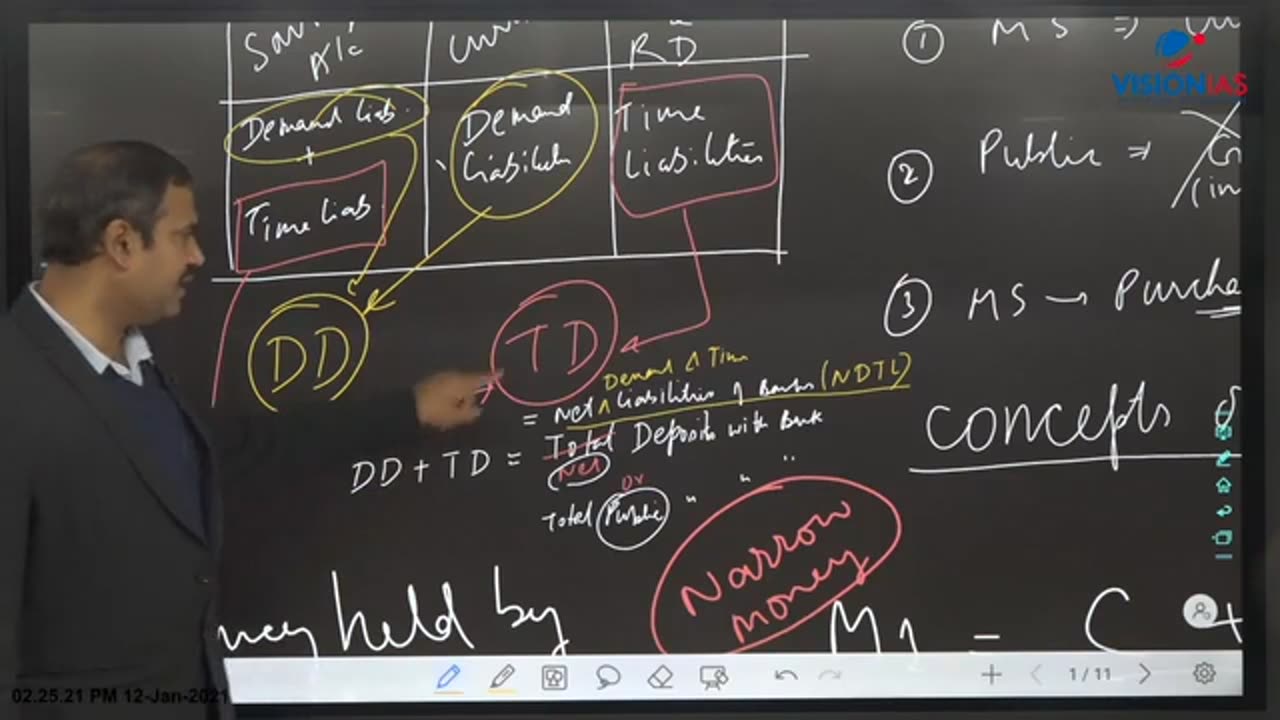 Sav.
A/c
Curr
RD
Demand Liab.
+
Time Liab.
Demand
Liabilities
Time
Liabilities
DD
TD
Demand & Time
= Net ∧ Liabilities of Banks (NDTL)
DD + TD = Total Deposits with Bank
Net
or
Total Public " " "
Narrow
money
held by
M1 = C +
① MS ⇒ Cu
② Public ⇒
③ MS → Purcha
concepts o
VISIONIAS
1/11
02.25.21 PM 12-Jan-2021